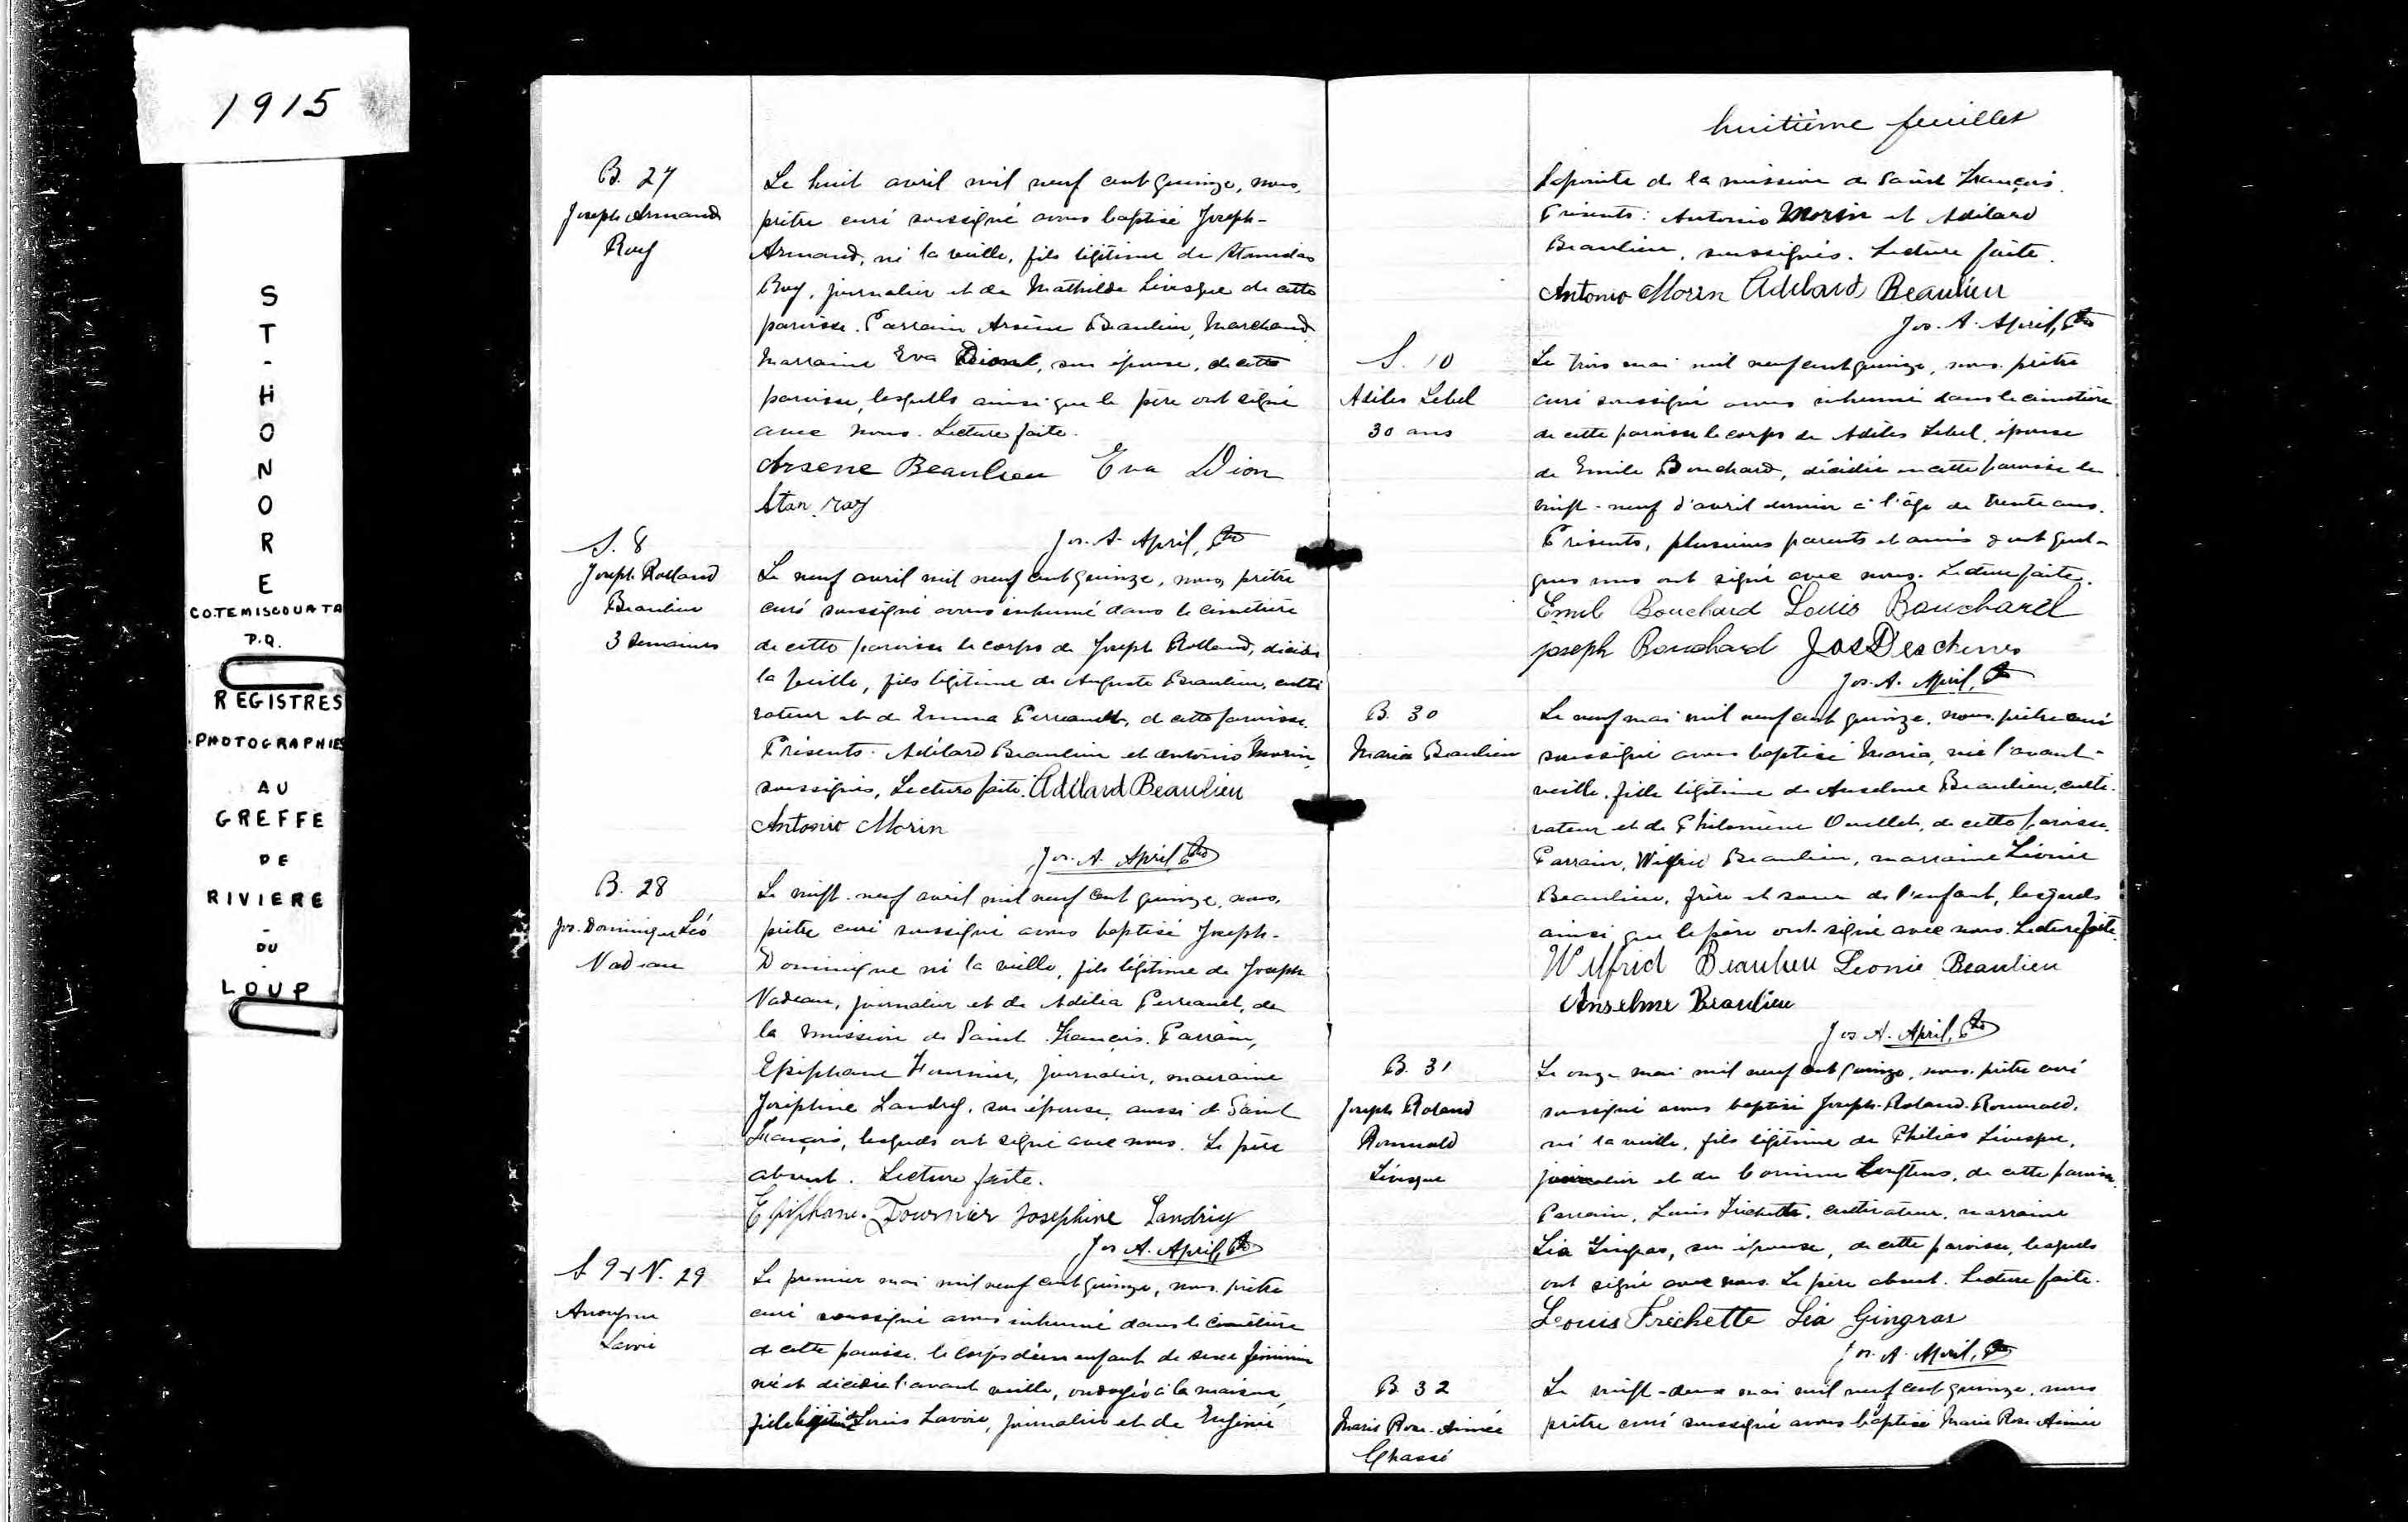 1915
S
T
-
H
O
N
O
R
E
CO.TEMISCOUATA
P.Q.
REGISTRES
PHOTOGRAPHIES
AU
GREFFE
DE
RIVIERE
-
DU
-
LOUP
B. 27
Joseph Armand
Roy
Le huit avril mil neuf cent quinze, nous,
prêtre curé soussigné avons baptisé Joseph-
Armand, né la veille, fils légitime de Stanislas
Roy, journalier et de Mathilde Lévesque de cette
paroisse. Parrain Arsène Beaulieu, Marchand
Marraine Eva Dion, son épouse, de cette
paroisse, lesquels ainsi que le père ont signé
avec nous. Lecture faite.
Arsene Beaulieu Eva Dion
Stan. roy
Jos. A. April, Ptre
S. 8
Joseph Rolland
Beaulieu
3 semaines
Le neuf avril mil neuf cent quinze, nous, prêtre
curé soussigné avons inhumé dans le cimetière
de cette paroisse le corps de Joseph Rolland, décédé
la veille, fils légitime de Auguste Beaulieu, culti
vateur et de Emma Perreault, de cette paroisse.
Présents: Adélard Beaulieu et Antonio Morin,
soussignés, Lecture faite. Adélard Beaulieu
Antonio Morin
Jos. A. April, Ptre
B. 28
Jos. Dominique Léo
Nadeau
Le vingt-neuf avril mil neuf cent quinze, nous,
prêtre curé soussigné avons baptisé Joseph-
Dominique né la veille, fils légitime de Joseph
Nadeau, journalier et de Adélia Perreault, de
la mission de Saint François. Parrain,
Epiphane Fournier, journalier, marraine
Joséphine Landry, son épouse, aussi de Saint
François, lesquels ont signé avec nous. Le père
absent. Lecture faite.
Epiphane Fournier Josephine Landry
Jos A. April, Ptre
S 9 & N. 29
Anonyme
Lavoie
Le premier mai mil neuf cent quinze, nous, prêtre
curé soussigné avons inhumé dans le cimetière
de cette paroisse, le corps d'un enfant de sexe féminin
né et décédé l'avant veille, ondoyé à la maison,
fille légitime de Louis Lavoie, journalier et de Eugénie
huitième feuillet
Lapointe de la mission de Saint François.
Présents: Antonio Morin et Adélard
Beaulieu, soussignés. Lecture faite.
Antonio Morin Adélard Beaulieu
Jos. A. April, Ptre
S. 10
Adiles Lebel
30 ans
Le trois mai mil neuf cent quinze, nous, prêtre
curé soussigné avons inhumé dans le cimetière
de cette paroisse le corps de Adiles Lebel, épouse
de Emile Bouchard, décédée en cette paroisse le
vingt-neuf d'avril dernier à l'âge de trente ans.
Présents, plusieurs parents et amis dont quel-
ques uns ont signé avec nous. Lecture faite.
Emile Bouchard Louis Bouchard
joseph Bouchard Jos Deschenes
Jos. A. April, Ptre
B. 30
Maria Beaulieu
Le neuf mai mil neuf cent quinze, nous, prêtre curé
soussigné avons baptisé Maria, née l'avant-
veille, fille légitime de Anselme Beaulieu, culti-
vateur et de Philomène Ouellet, de cette paroisse.
Parrain, Wilfrid Beaulieu, marraine Léonie
Beaulieu, frère et sœur de l'enfant, lesquels
ainsi que le père ont signé avec nous. Lecture faite.
Wilfrid Beaulieu Leonie Beaulieu
Anselme Beaulieu
Jos A. April, Ptre
B. 31
Joseph Roland
Romuald
Lévesque
Le onze mai mil neuf cent quinze, nous, prêtre curé
soussigné avons baptisé Joseph-Roland-Romuald,
né la veille, fils légitime de Philias Lévesque,
journalier et de Corinne Lengtens, de cette paroisse.
Parrain, Louis Fréchette, cultivateur, marraine
Léa Gingras, son épouse, de cette paroisse, lesquels
ont signé avec nous. Le père absent. Lecture faite.
Leouis Fréchette Léa Gingras
Jos. A. April, Ptre
B 32
Marie Rose-Aimée
Chassé
Le vingt-deux mai mil neuf cent quinze, nous
prêtre curé soussigné avons baptisé Marie Rose-Aimée